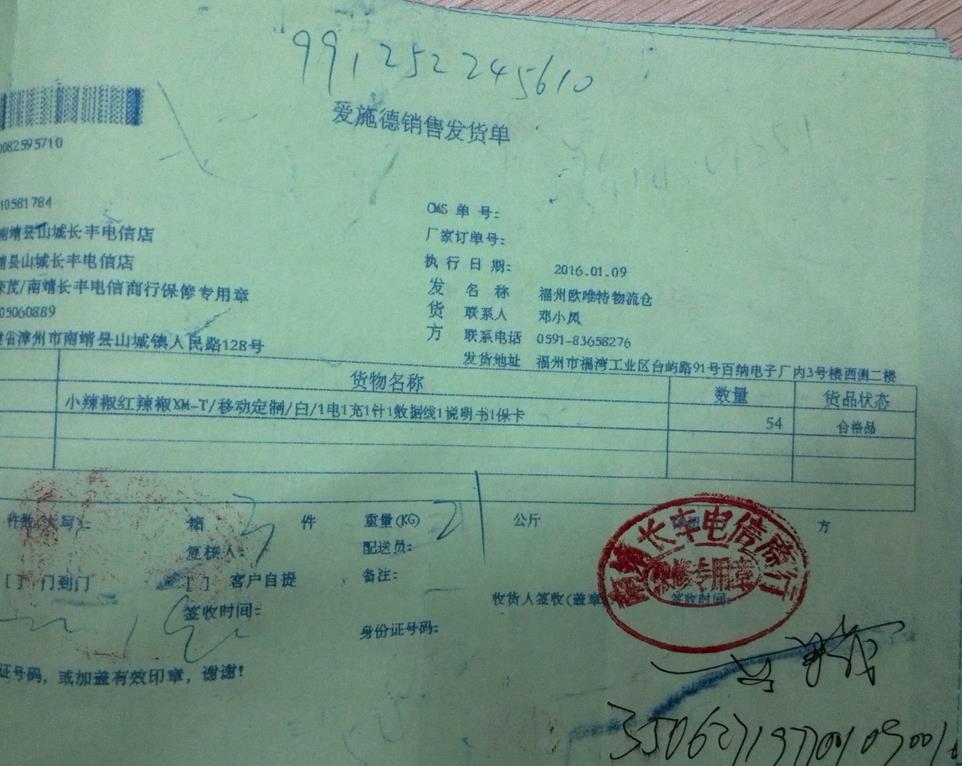 991252245610
爱施德销售发货单
0082595710
10581784
CMS 单 号:
南靖县山城长丰电信店
厂家订单号:
靖县山城长丰电信店
执 行 日 期: 2016.01.09
茂/南靖长丰电信商行保修专用章
发 名 称 福州欧唯特物流仓
05060889
货 联系人 邓小凤
省漳州市南靖县山城镇人民路128号
方 联系电话 0591-83658276
发货地址 福州市福湾工业区台屿路91号百纳电子厂内3号楼西侧二楼
货物名称 数量 货品状态
小辣椒红辣椒XM-T/移动定制/白/1电1充1针1数据线1说明书1保卡 54 合格品
件数(大写): 箱 3 件 重量(KG) 21 公斤 方
复核人: 配送员:
[ ] 门到门 [ ] 客户自提 备注:
收货人签收(盖章 签收时间:
签收时间: 身份证号码:
证号码, 或加盖有效印章, 谢谢!
南靖长丰电信商行
保修专用章